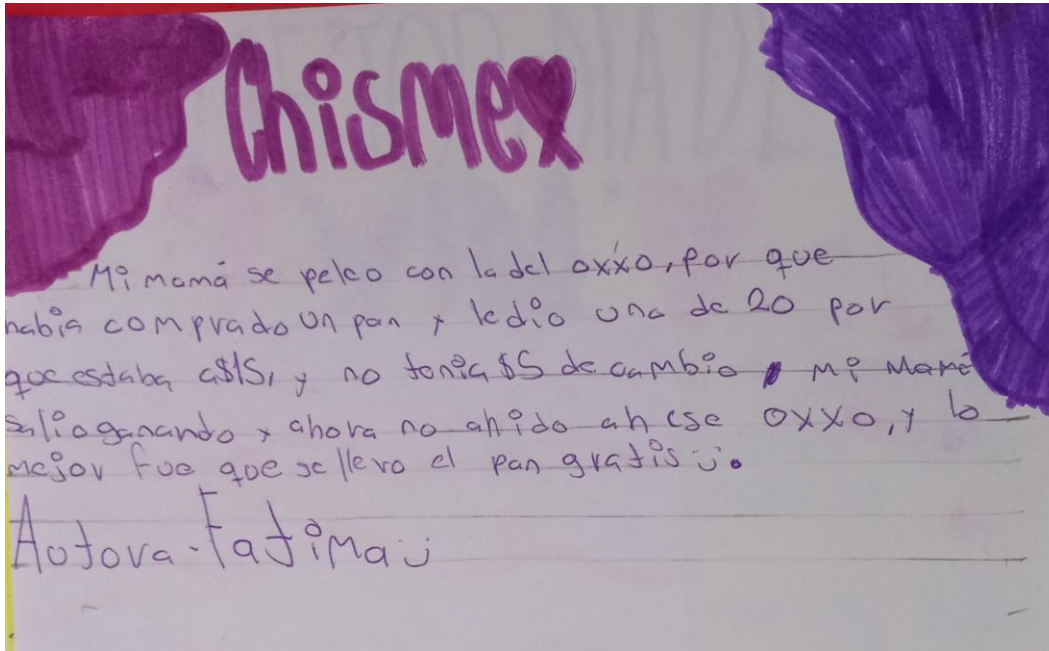 Chismex
Mi mamá se peleo con la del oxxo, por que
habia comprado un pan y le dio una de 20 por
que estaba a $15, y no tenia $5 de cambio, mi mamá
salio ganando y ahora no ah ido ah ese oxxo, y lo
mejor fue que se llevo el pan gratis :).
Autora - Fatima :)